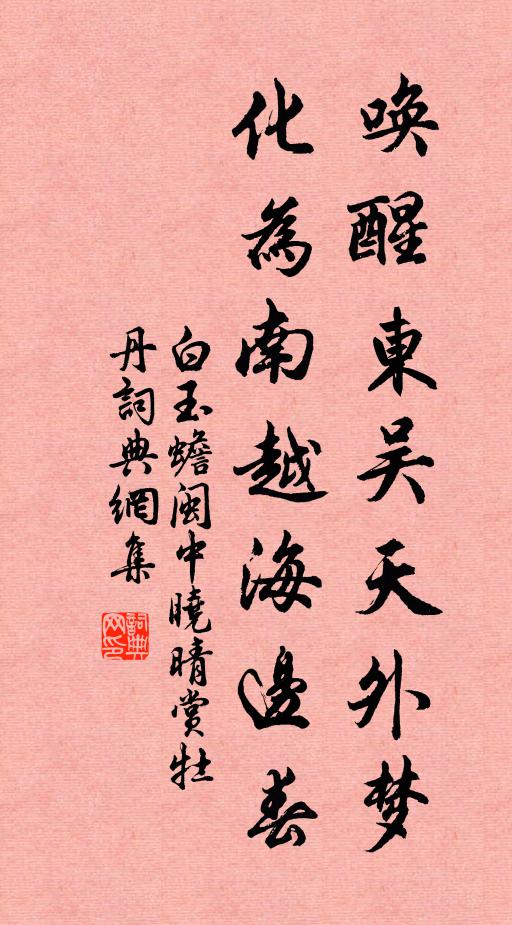 唤醒東吴天外梦
化為南越海邊春
白玉蟾閩中曉晴賞牡
丹詞典網集
詞典
网印